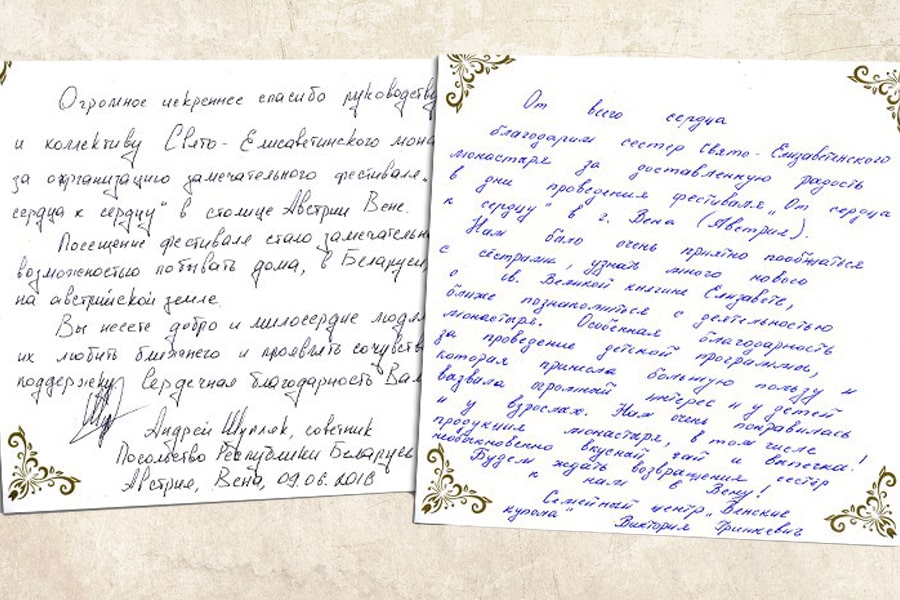 Огромное искреннее спасибо руководству
и коллективу Свято-Елисаветинского мона
за организацию замечательного фестиваля „
сердца к сердцу" в столице Австрии Вене.
Посещение фестиваля стало замечательн
возможностью побывать дома, в Беларуси,
на австрийской земле.
Вы несете добро и милосердие людям
их любить ближнего и проявлять сочувств
поддержку. Сердечная благодарность Вам
Андрей Шупляк, советник
Посольство Республики Беларусь
Австрия, Вена, 09.06.2018
От всего сердца
благодарим сестер Свято-Елизаветенского
монастыря за доставленную радость
в дни проведения фестиваля „От сердца
к сердцу" в г. Вена (Австрия).
Нам было очень приятно пообщаться
с сёстрами, узнать много нового
о св. Великой княгине Елизавете,
ближе познакомиться с деятельностью
монастыря. Особенная благодарность
за проведение детской программы,
которая принесла большую пользу и
вызвала огромный интерес и у детей
и у взрослых. Нам очень понравилась
продукция монастыря, в том числе
необыкновенно вкусный чай и выпечка!
Будем ждать возвращения сестёр
к нам в Вену!
Семейный центр „Венские
купола"
Виктория Гринкевич